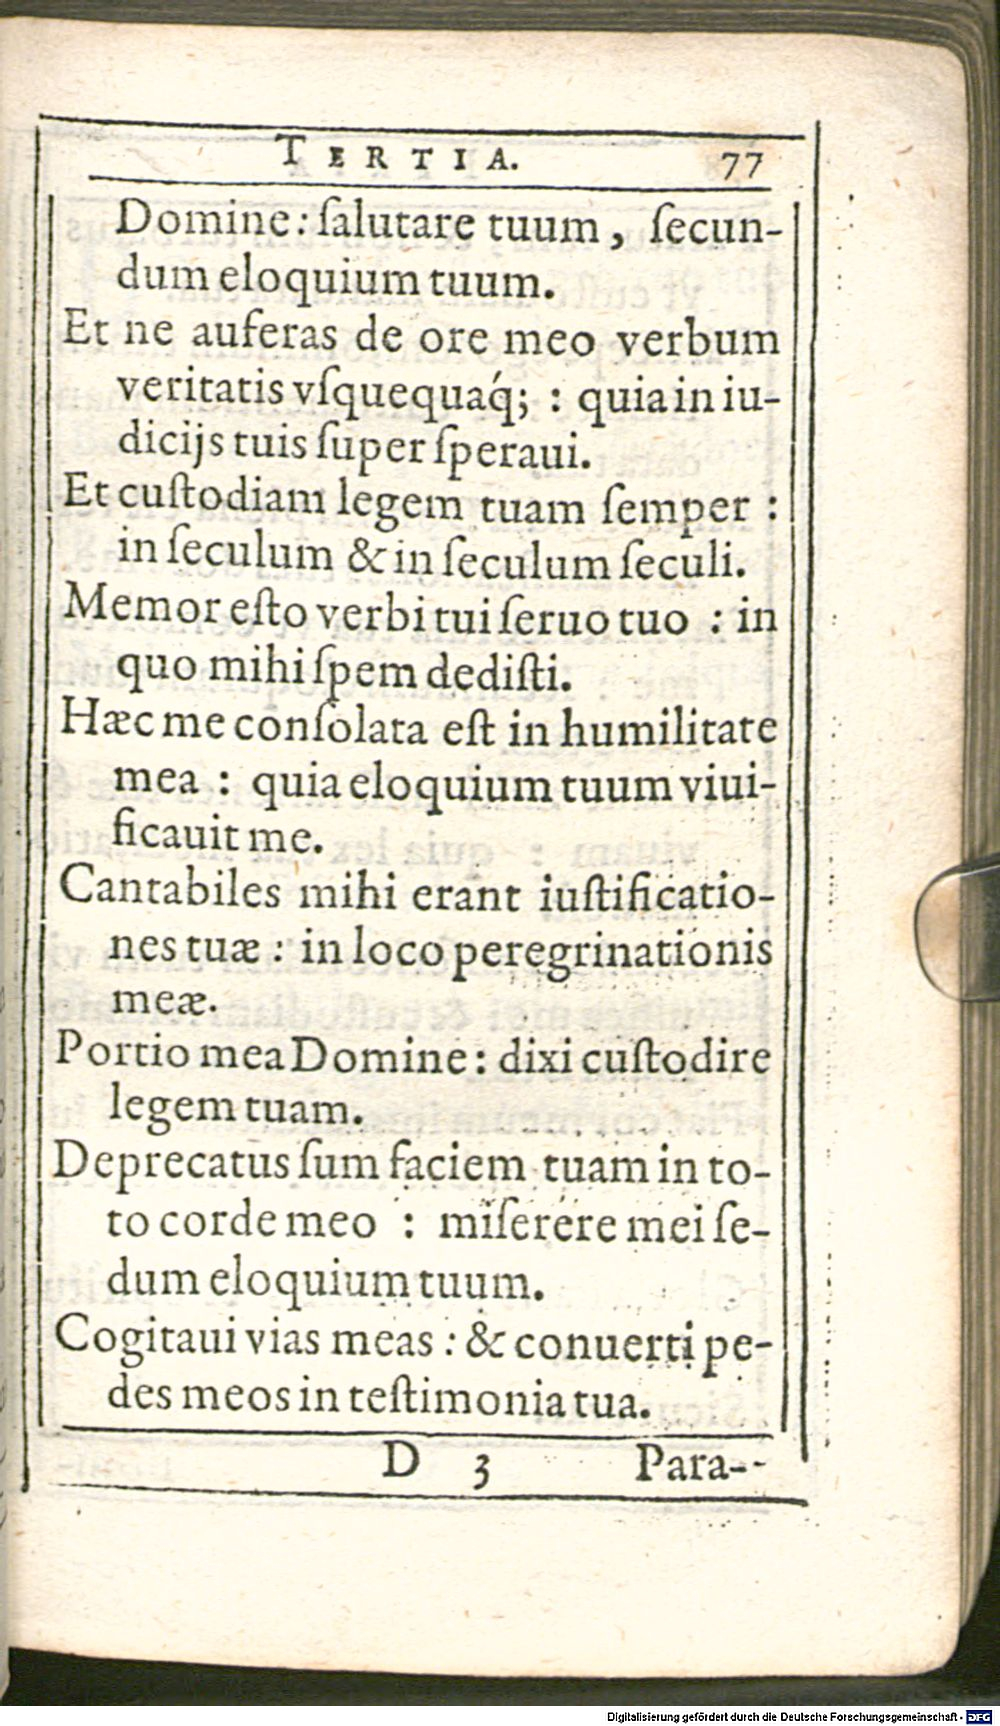 TERTIA. 77
Domine: ſalutare tuum, ſecun-
dum eloquium tuum.
Et ne auferas de ore meo verbum
veritatis vſquequaq́;: quia in iu-
dicijs tuis ſuper ſperaui.
Et cuſtodiam legem tuam ſemper :
in ſeculum & in ſeculum ſeculi.
Memor eſto verbi tui ſeruo tuo : in
quo mihi ſpem dediſti.
Hæc me conſolata eſt in humilitate
mea : quia eloquium tuum viui-
ficauit me.
Cantabiles mihi erant iuſtificatio-
nes tuæ : in loco peregrinationis
meæ.
Portio mea Domine: dixi cuſtodire
legem tuam.
Deprecatus ſum faciem tuam in to-
to corde meo : miſerére mei ſe-
dum eloquium tuum.
Cogitaui vias meas : & conuerti pe-
des meos in teſtimonia tua.
D 3 Para-
Digitalisierung gefördert durch die Deutsche Forschungsgemeinschaft - DFG